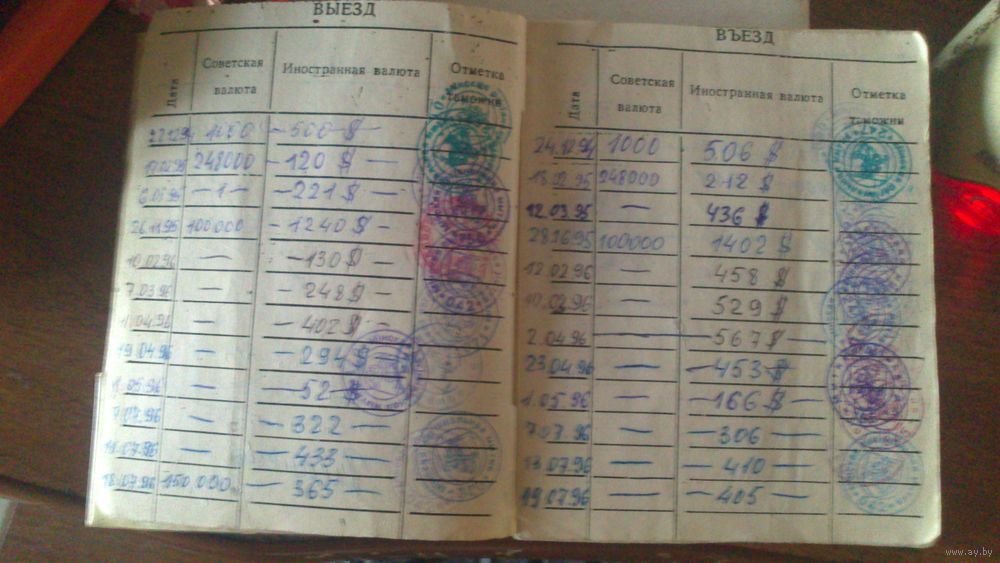 ВЫЕЗД
Дата Советская валюта Иностранная валюта Отметка таможни
1000 - 500 $ -
248000 - 120 $ -
6.03.95 - 1 - - 221 $ -
26.11.95 100000 - 1240 $ -
10.02.96 - - 130 $ -
7.03.96 - - 248 $ -
1.04.96 - - 402 $ -
19.04.96 - - 294 $ -
1.05.96 - - 52 $
7.07.96 - - 322 -
- - 433 -
18.07.96 150 000 - - 365 -
ВЪЕЗД
Дата Советская валюта Иностранная валюта Отметка таможни
1000 506 $
18.02.95 248000 212 $
12.03.95 - 436 $
100000 1402 $
12.02.96 - 458 $
- 529 $
2.04.96 - - 567 $ -
23.04.96 - - 453 $ -
1.05.96 - - 166 $ -
7.07.96 - - 306 -
13.07.96 - - 410 -
19.07.96 - - 405 -
www.ay.by